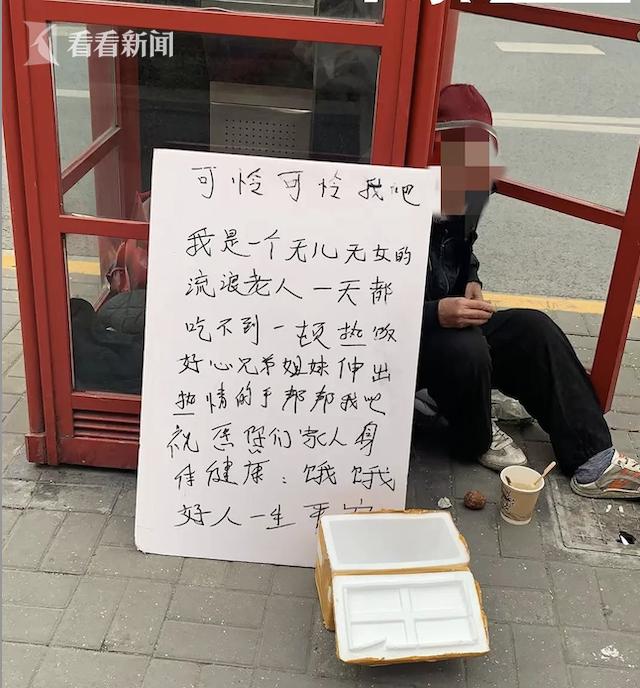 看看新闻
可怜可怜我吧
我是一个无儿无女的
流浪老人一天都
吃不到一顿热饭
好心兄弟姐妹伸出
热情的手邦邦我吧
祝愿您们家人身
体健康：饿饿
好人一生平安